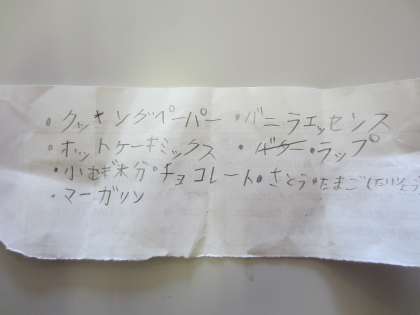 ・クッキングペーパー ・バニラエッセンス
・ホットケーキミックス ・ラップ
・小むぎ粉 ・チョコレート・さとう・たまご
・マーガリン